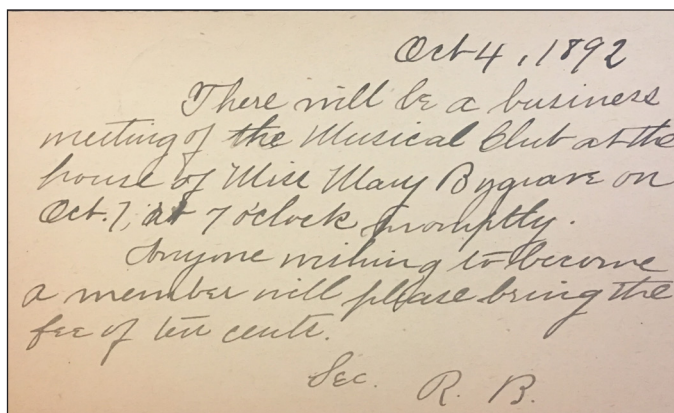 Oct 4, 1892
There will be a business
meeting of the Musical Club at the
house of Miss Mary Bygrave on
Oct. 7, at 7 o'clock promptly.
Anyone wishing to become
a member will please bring the
fee of ten cents.
Sec. R. B.